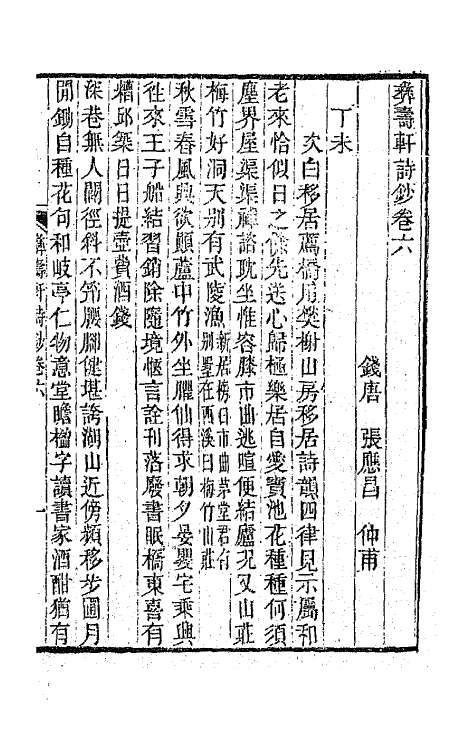 彝壽軒詩鈔卷六
錢唐　張應昌　仲甫
丁未
次白移居薦橋用樊榭山房移居詩韻四律見示屬和
老來恰似日之餘先送心歸極樂居自愛寶池花種種何須
塵界屋渠渠禪諮耽坐惟容膝市曲逃喧便結廬況又山莊
梅竹好洞天別有武陵漁新居榜曰市曲茅堂君有別墅在西溪曰梅竹山莊
秋雪春風興欲顛蘆中竹外坐臞仙得求朝夕晏嬰宅乘興
往來王子船結習銷除隨境愜言詮刊落廢書眠橋東喜有
糟邱築日日提壺費酒錢
深巷無人闢徑斜不筇腰腳健堪誇湖山近傍頻移步圃月
閒鋤自種花句和岐亭仁物意堂瞻楹字讀書家酒酣猶有
彝壽軒詩鈔卷六　一